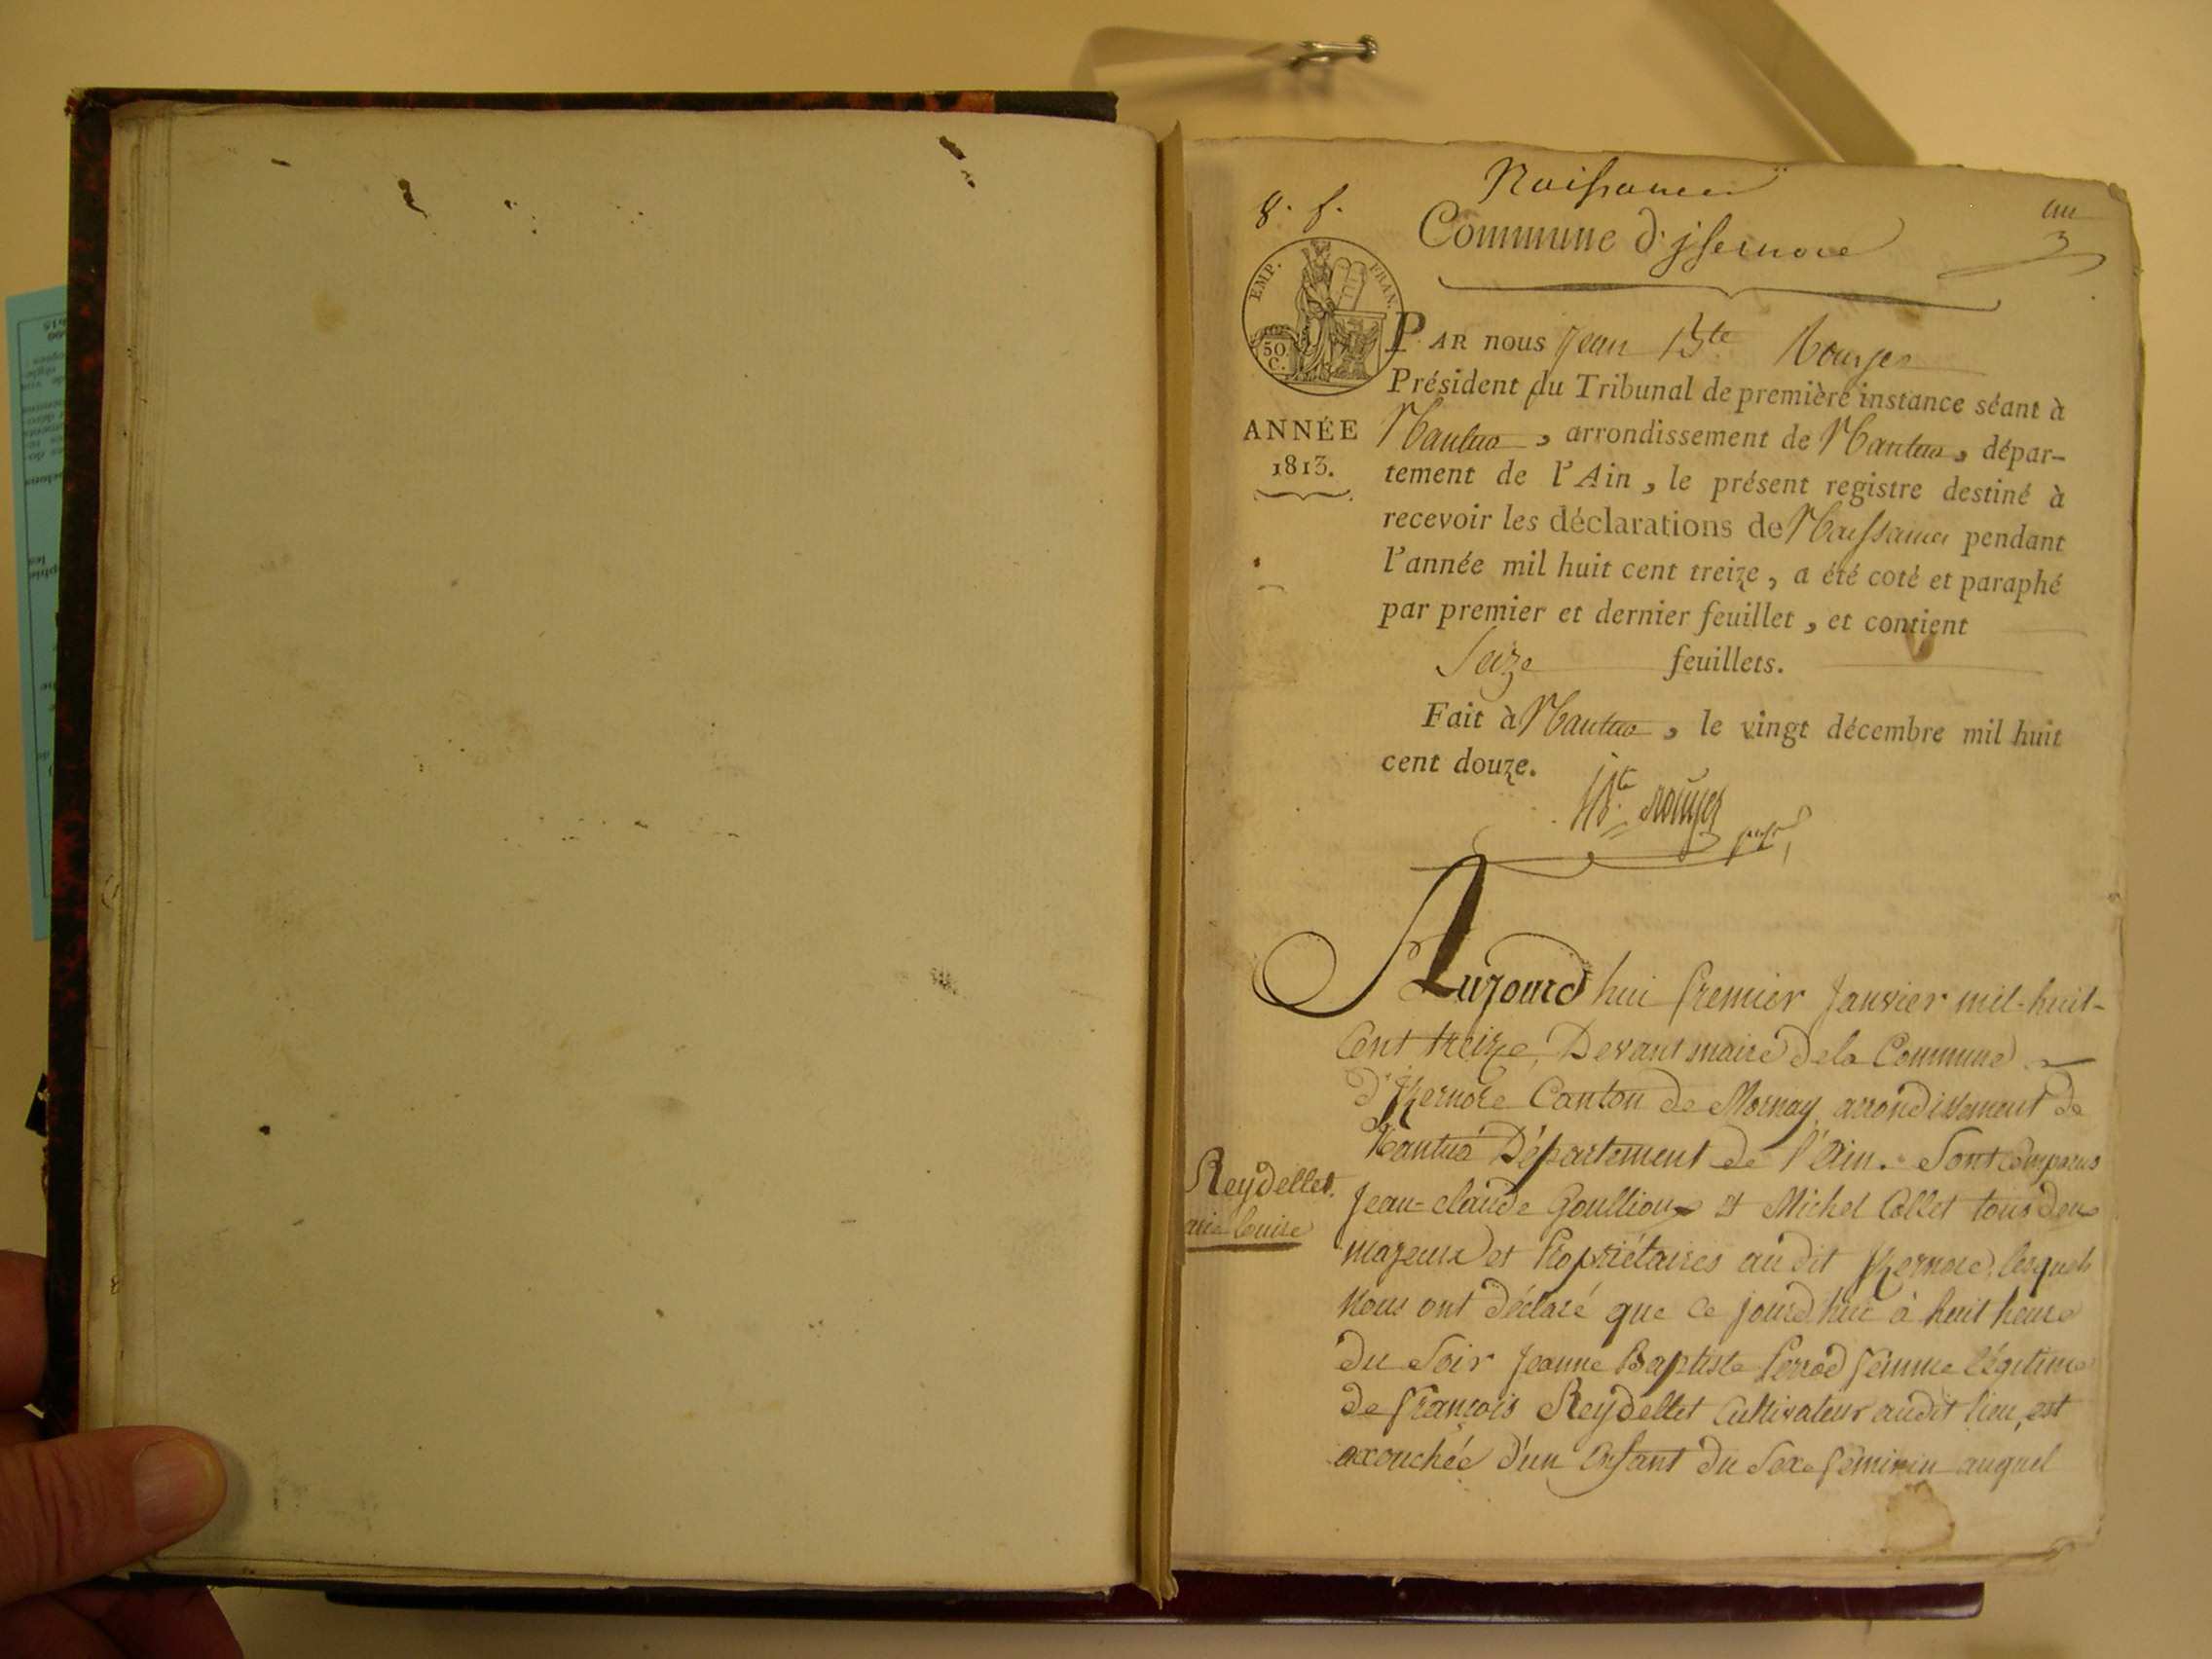 Naissances
8. f.
un
Commune d'jsernore
EMP. FRAN.
50 C.
PAR nous Jean Bte Rouyer
Président du Tribunal de première instance séant à
ANNÉE
1813.
Nantua, arrondissement de Nantua, dépar-
tement de l'Ain, le présent registre destiné à
recevoir les déclarations de Naissances pendant
l'année mil huit cent treize, a été coté et paraphé
par premier et dernier feuillet, et contient
Seize feuillets.
Fait à Nantua, le vingt décembre mil huit
cent douze.
JBte Rouyer
Aujourd hui premier Janvier mil-huit-
Cent treize, Devant maire de la Commune
d'Izernore Canton de Mornay, arrondissement de
Nantua Département de l'Ain. Sont comparus
Reydellet.
arie louise
Jean-claude Goullioux et Michel Collet tous deux
majeurs et Propriétaires audit Izernore, lesquels
Nous ont déclaré que ce jourd'hui à huit heure
du Soir Jeanne Baptiste Perrod femme légitime
de françois Reydellet Cultivateur audit lieu, est
accouchée d'un Enfant du Sexe féminin auquel